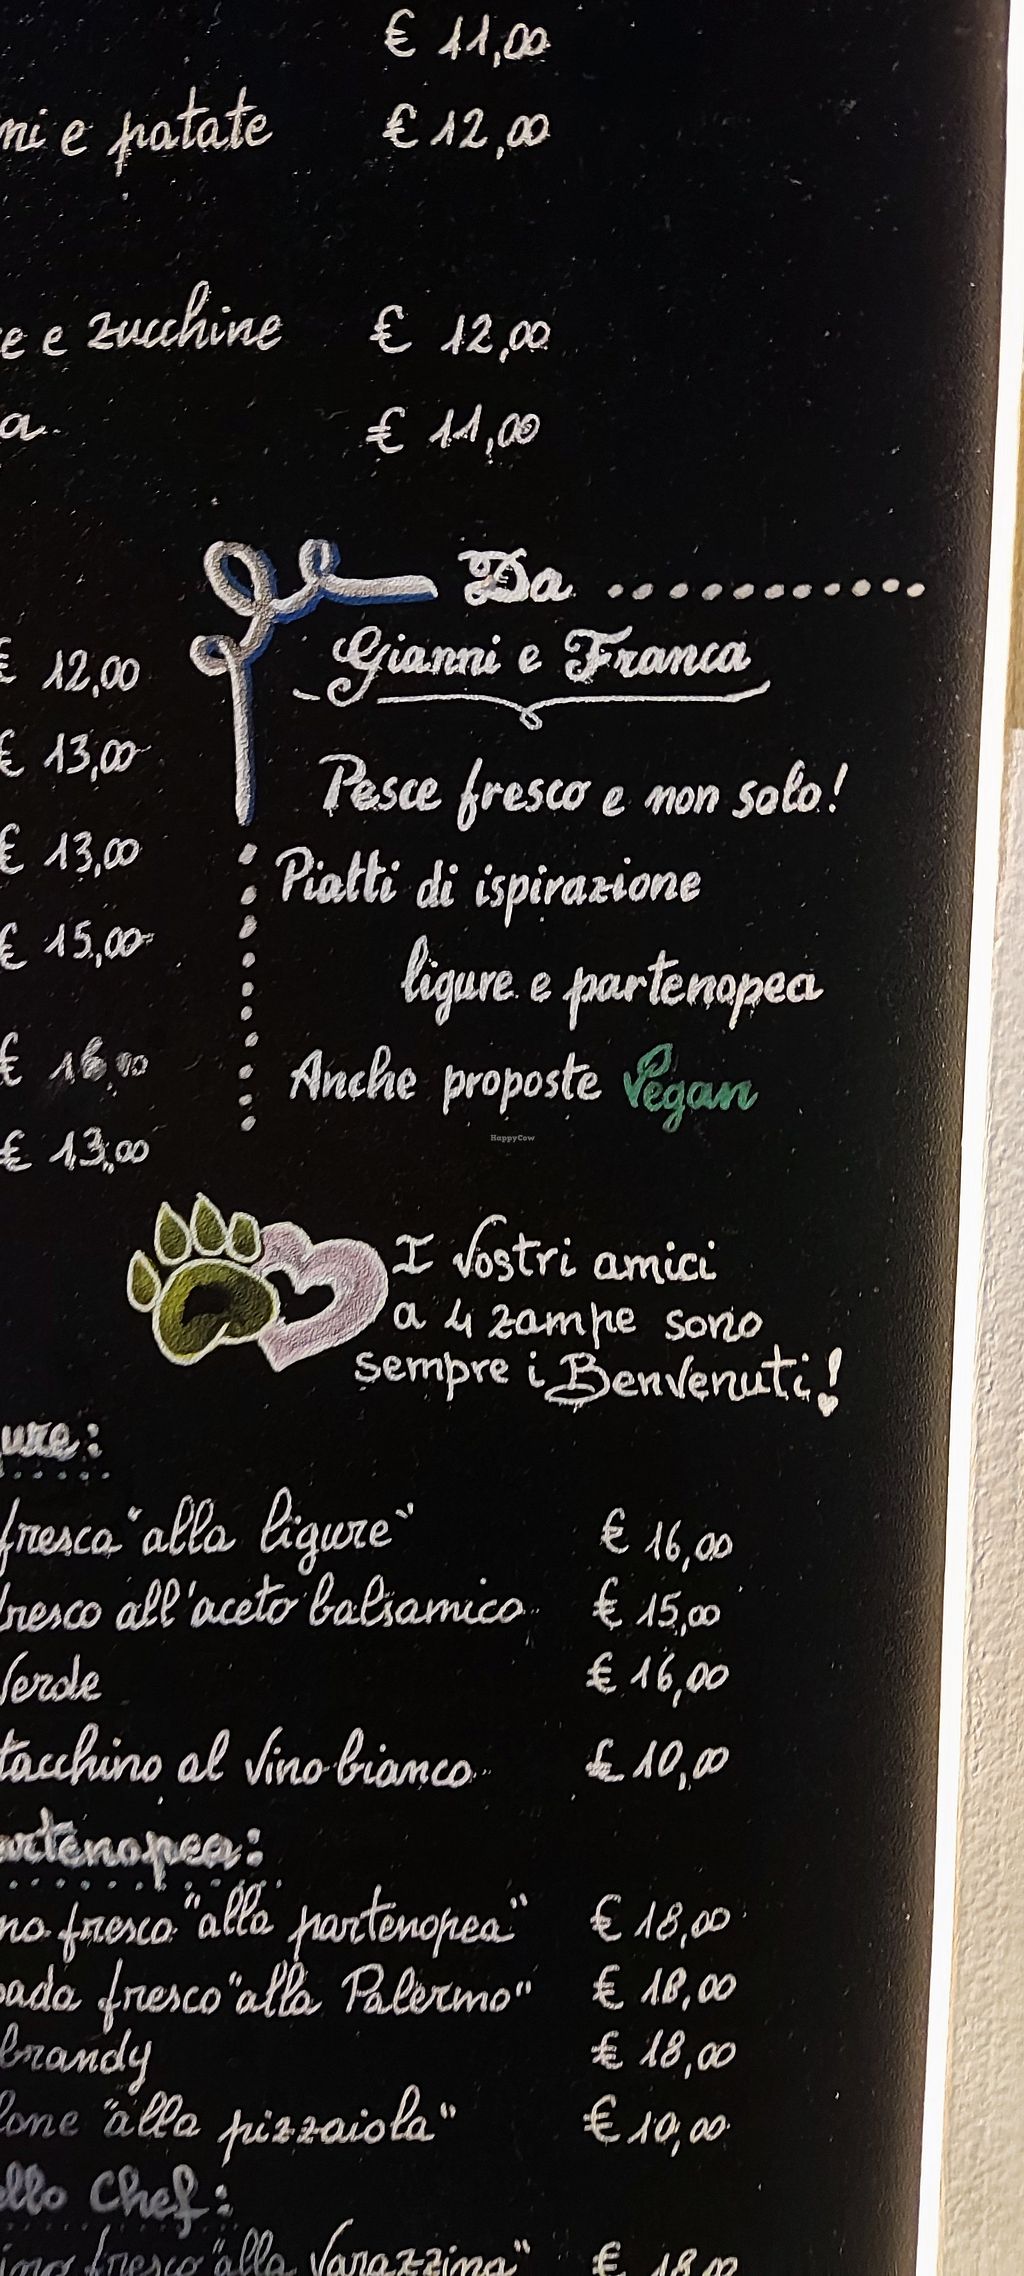 € 11,00
ni e patate € 12,00
e e zucchine € 12,00
a € 11,00
Da ............
Gianni e Franca
€ 12,00
€ 13,00
Pesce fresco e non solo!
€ 13,00
Piatti di ispirazione
€ 15,00
ligure e partenopea
Anche proposte Vegan
HappyCow
€ 13,00
I Vostri amici
a 4 zampe sono
sempre i Benvenuti!
gure:
fresca "alla ligure" € 16,00
fresco all'aceto balsamico € 15,00
Verde € 16,00
tacchino al vino bianco € 10,00
artenopea:
no fresco "alla partenopea" € 18,00
pada fresco "alla Palermo" € 18,00
brandy € 18,00
lone "alla pizzaiola" € 10,00
ello Chef:
ino fresco "alla Varazzina" € 18,00